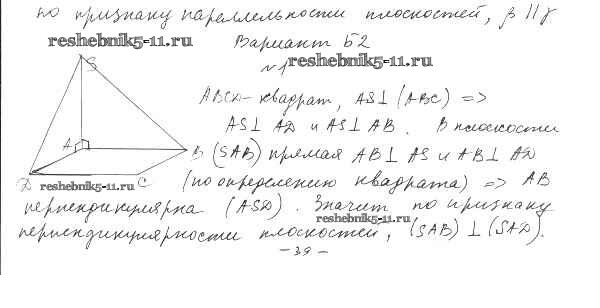 по признаку параллельности плоскостей, β || γ
reshebnik5-11.ru
Вариант Б2
reshebnik5-11.ru
№1
S
ABCD - квадрат, AS⊥(ABC) =>
AS⊥ AD и AS⊥ AB. В плоскости
A
B
(SAB) прямая AB⊥ AS и AB⊥ AD
D
reshebnik5-11.ru
C
(по определению квадрата) => AB
перпендикулярна (ASD). Значит по признаку
reshebnik5-11.ru
перпендикулярности плоскостей, (SAB) ⊥ (SAD).
- 39 -